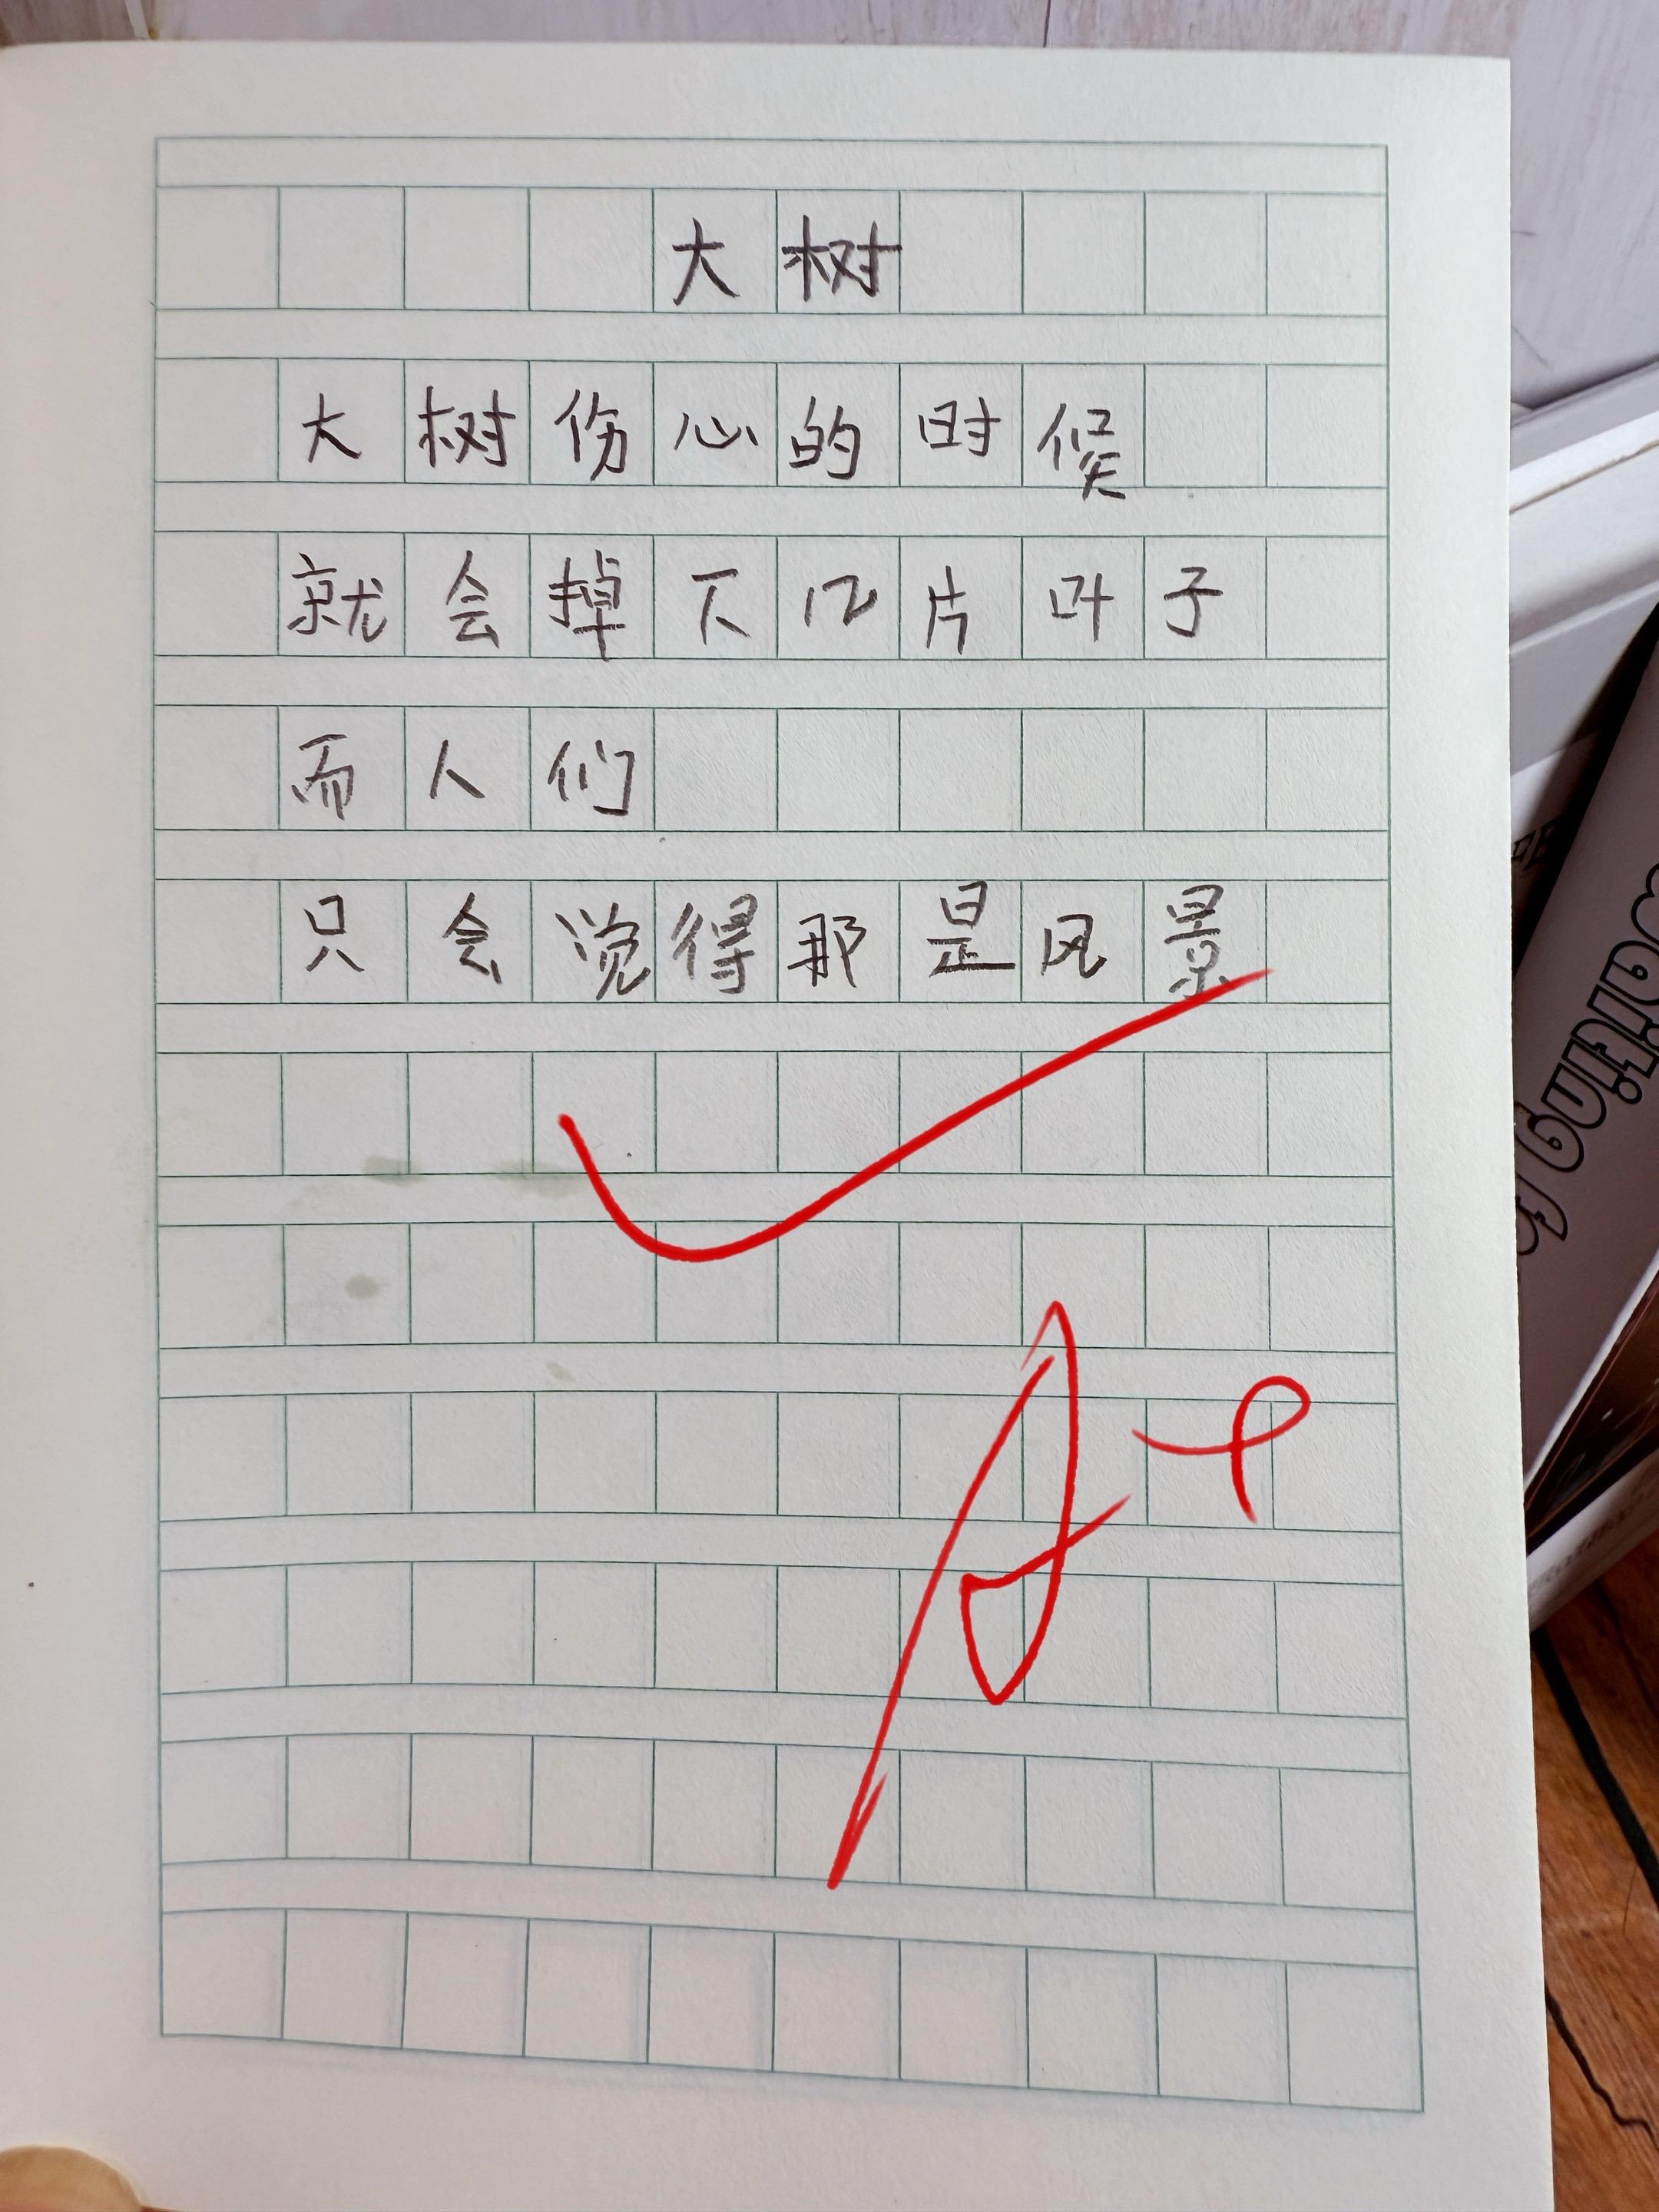 大树
大树伤心的时候
就会掉下几片叶子
而人们
只会觉得那是风景
A+
waiting fo